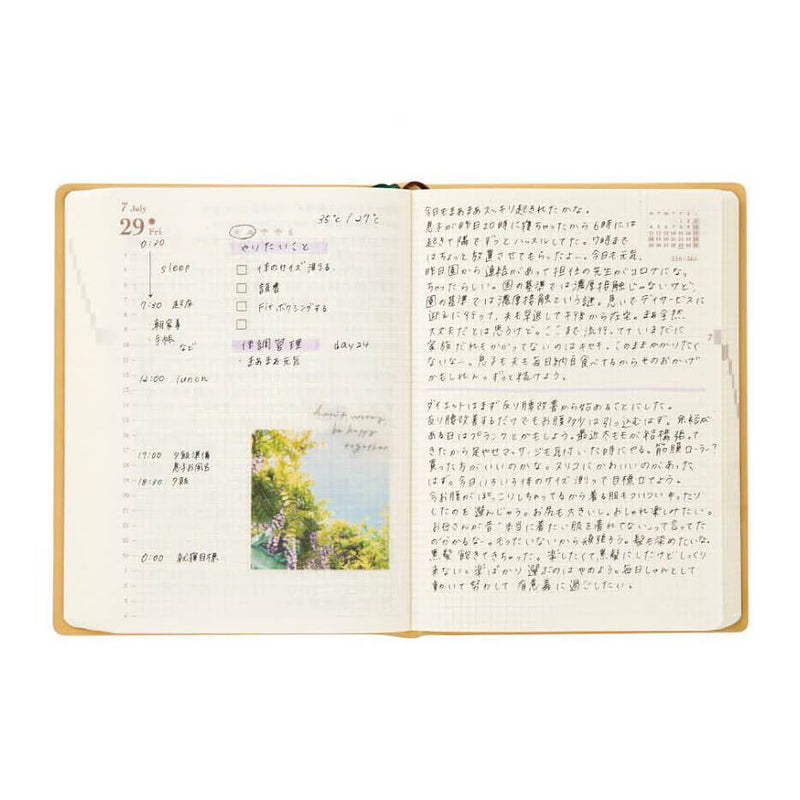 7 July
29 Fri
35℃ / 27℃
0:20
sleep
7:30 起床
朝家事
・手帳
など
12:00 lunch
17:00 夕飯準備
息子お風呂
18:30 夕飯
0:00 就寝目標
やりたいこと
体のサイズ測る
読書
Fitボクシングする
体調管理 day24
・まあまあ元気
don't worry
be happy
together
今日もまあまあスッキリ起きれたかな。
息子が昨日20時に寝ちゃったから6時には
起きて隣でずっとハッスルしてた。7時まで
はちょっと放置させてもらったよー。今日も元気。
昨日園から連絡があって担任の先生がコロナになっ
ちゃったらしい。国の基準では濃厚接触じゃないけど、
園の基準では濃厚接触という謎。急いでデイサービスに
迎えに行って、夫も早退して午後から在宅。まあ全然
大丈夫だとは思うけど。ここまで流行ってていまだに
家族だれもかかってないのはキセキ。このままかかりたく
ないなー。息子も夫も毎日納豆食べてるからそのおかげ
かもしれん。ずっと続けよう。
ダイエットはまず反り腰改善から始めることにした。
反り腰改善するだけでもお腹多少は引っ込むはず。余裕が
ある日はプランクとかもしよう。最近太ももが結構張って
きたから足やせマッサージも気付いた時にやる。筋膜ローラー?
買った方がいいのかな。スリコにかわいいのがあった
はず。今日いろいろ体のサイズ測って目標立てよう。
今お腹がぽっこりしちゃってるから着る服もついついゆったり
したのを選んじゃう。お尻も大きいし。おしゃれ楽しみたい。
お母さんが昔"本当に着たい服を着れてない"って言ってた
のが分かるなー。もったいないから頑張ろう。髪も染めたいな。
黒髪飽きてきちゃった。楽したくて黒髪にしたけどしっくり
来ない。楽ばかり選ぶのはやめよう。毎日しゃんとして
動いて努力して有意義に過ごしたい。
7